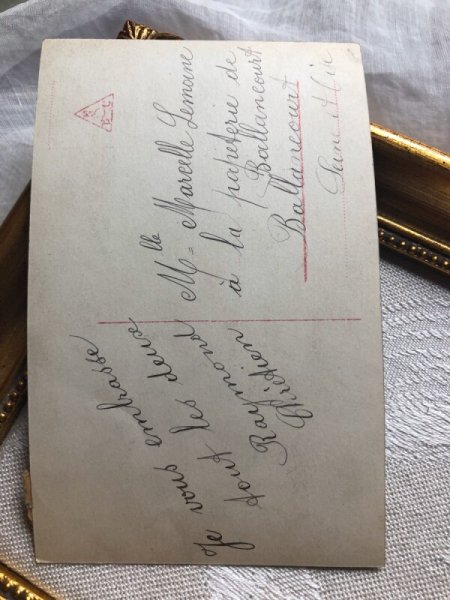 Je vous embrasse
tout les deux
Raymond
Mlle Marcelle Lemoine
à la papeterie de
Ballancourt
Ballancourt
Seine et Oise